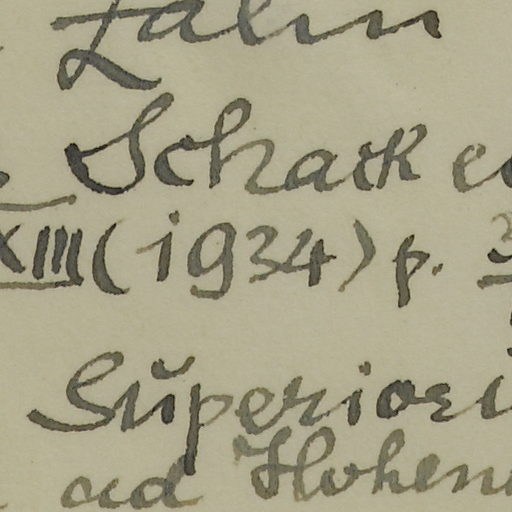 Zahn
Schack
XIII (1934) p.
Superior
ad Hohen